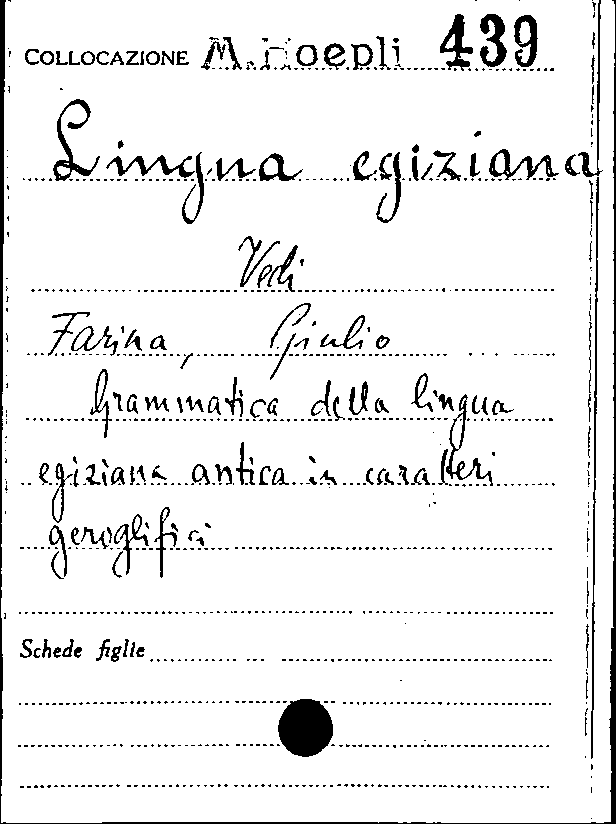 COLLOCAZIONE M. Hoepli 439
Lingua egiziana
Vedi
Farina, Giulio
Grammatica della lingua
egiziana antica in caratteri
geroglifici
Schede figlie